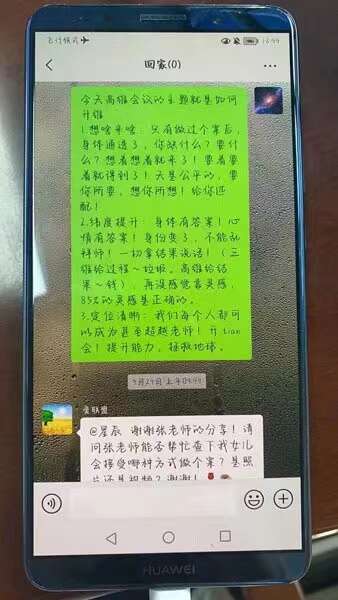 飞行模式
回家(0)
今天高维会议的主题就是如何
升维
1.想啥来啥:只有做过个案后,
身体通透了,你缺什么?要什
么?想着想着就来了!要着要
着就得到了!天是公平的,要
你所要,想你所想!给你匹
配!
2.纬度提升:身体有答案!心
情有答案!身份变了,不能乱
拜师!一切拿结果说话!(三
维给过程~垃圾。高维给结
果~钱),再没感觉喜灵感,
85%的灵感是正确的。
3.定位清晰:我们每个人都可
以成为甚至超越老师!开tian
会!提升能力。拯救地球。
爱联盟
@星辰 谢谢张老师的分享!请
问张老师能否帮忙查下我女儿
会接受哪种方式做个案?是照
片还是视频?谢谢!
HUAWEI